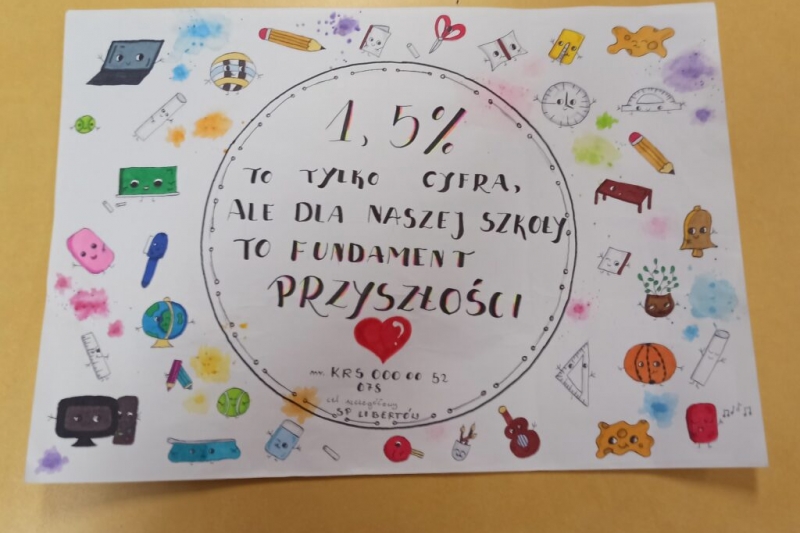 1,5%
TO TYLKO CYFRA,
ALE DLA NASZEJ SZKOŁY
TO FUNDAMENT
PRZYSZŁOŚCI
nr. KRS 000 00 52
078
cel szczegółowy
SP LIBERTÓW